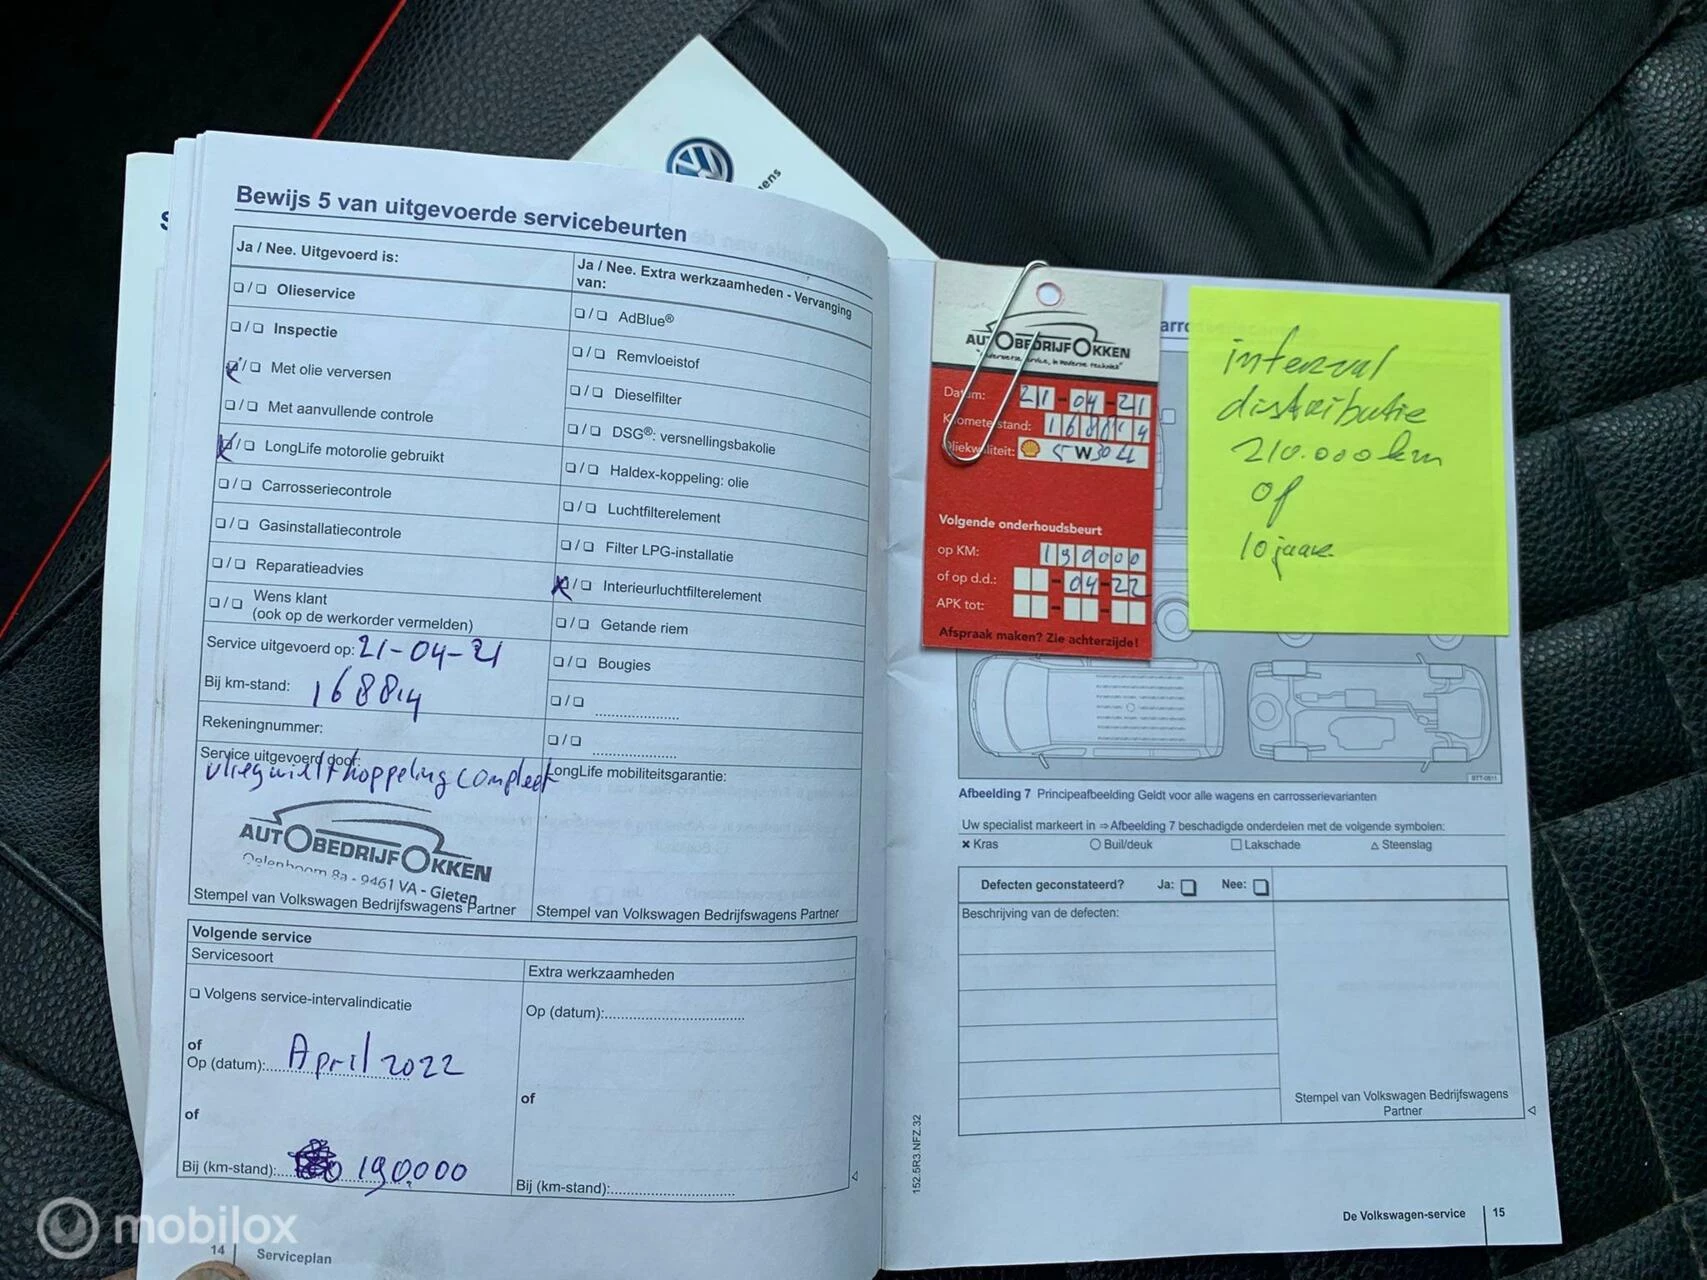 Bewijs 5 van uitgevoerde servicebeurten
Ja / Nee. Uitgevoerd is:
❏ / ❏ Olieservice
❏ / ❏ Inspectie
❏ / ❏ Met olie verversen
❏ / ❏ Met aanvullende controle
❏ / ❏ LongLife motorolie gebruikt
❏ / ❏ Carrosseriecontrole
❏ / ❏ Gasinstallatiecontrole
❏ / ❏ Reparatieadvies
❏ / ❏ Wens klant
(ook op de werkorder vermelden)
Service uitgevoerd op: 21-04-21
Bij km-stand: 168814
Rekeningnummer:
Service uitgevoerd door:
vliegwiel + koppeling compleet
AUTOBEDRIJF OKKEN
8a - 9461 VA - Gieten
Stempel van Volkswagen Bedrijfswagens Partner
Ja / Nee. Extra werkzaamheden - Vervanging
van:
❏ / ❏ AdBlue®
❏ / ❏ Remvloeistof
❏ / ❏ Dieselfilter
❏ / ❏ DSG®: versnellingsbakolie
❏ / ❏ Haldex-koppeling: olie
❏ / ❏ Luchtfilterelement
❏ / ❏ Filter LPG-installatie
❏ / ❏ Interieurluchtfilterelement
❏ / ❏ Getande riem
❏ / ❏ Bougies
❏ / ❏ ....................
❏ / ❏ ....................
LongLife mobiliteitsgarantie:
Stempel van Volkswagen Bedrijfswagens Partner
Volgende service
Servicesoort
❏ Volgens service-intervalindicatie
of
Op (datum): April 2022
of
Bij (km-stand): 190.000
Extra werkzaamheden
Op (datum):
of
Bij (km-stand):
14 Serviceplan
AUTOBEDRIJF OKKEN
Datum: 21-04-21
Kilometerstand: 168814
Oliekwaliteit: 5W30 LL
Volgende onderhoudsbeurt
op KM: 190000
of op d.d.: -04-22
APK tot:
Afspraak maken? Zie achterzijde!
interval
distributie
210.000 km
of
10 jaar
STT-0511
Afbeelding 7 Principeafbeelding Geldt voor alle wagens en carrosserievarianten
Uw specialist markeert in ⇒ Afbeelding 7 beschadigde onderdelen met de volgende symbolen:
✖ Kras ○ Buil/deuk □ Lakschade △ Steenslag
Defecten geconstateerd? Ja: ❏ Nee: ❏
Beschrijving van de defecten:
Stempel van Volkswagen Bedrijfswagens
Partner
152.5R3.NFZ.32
De Volkswagen-service 15
mobilox